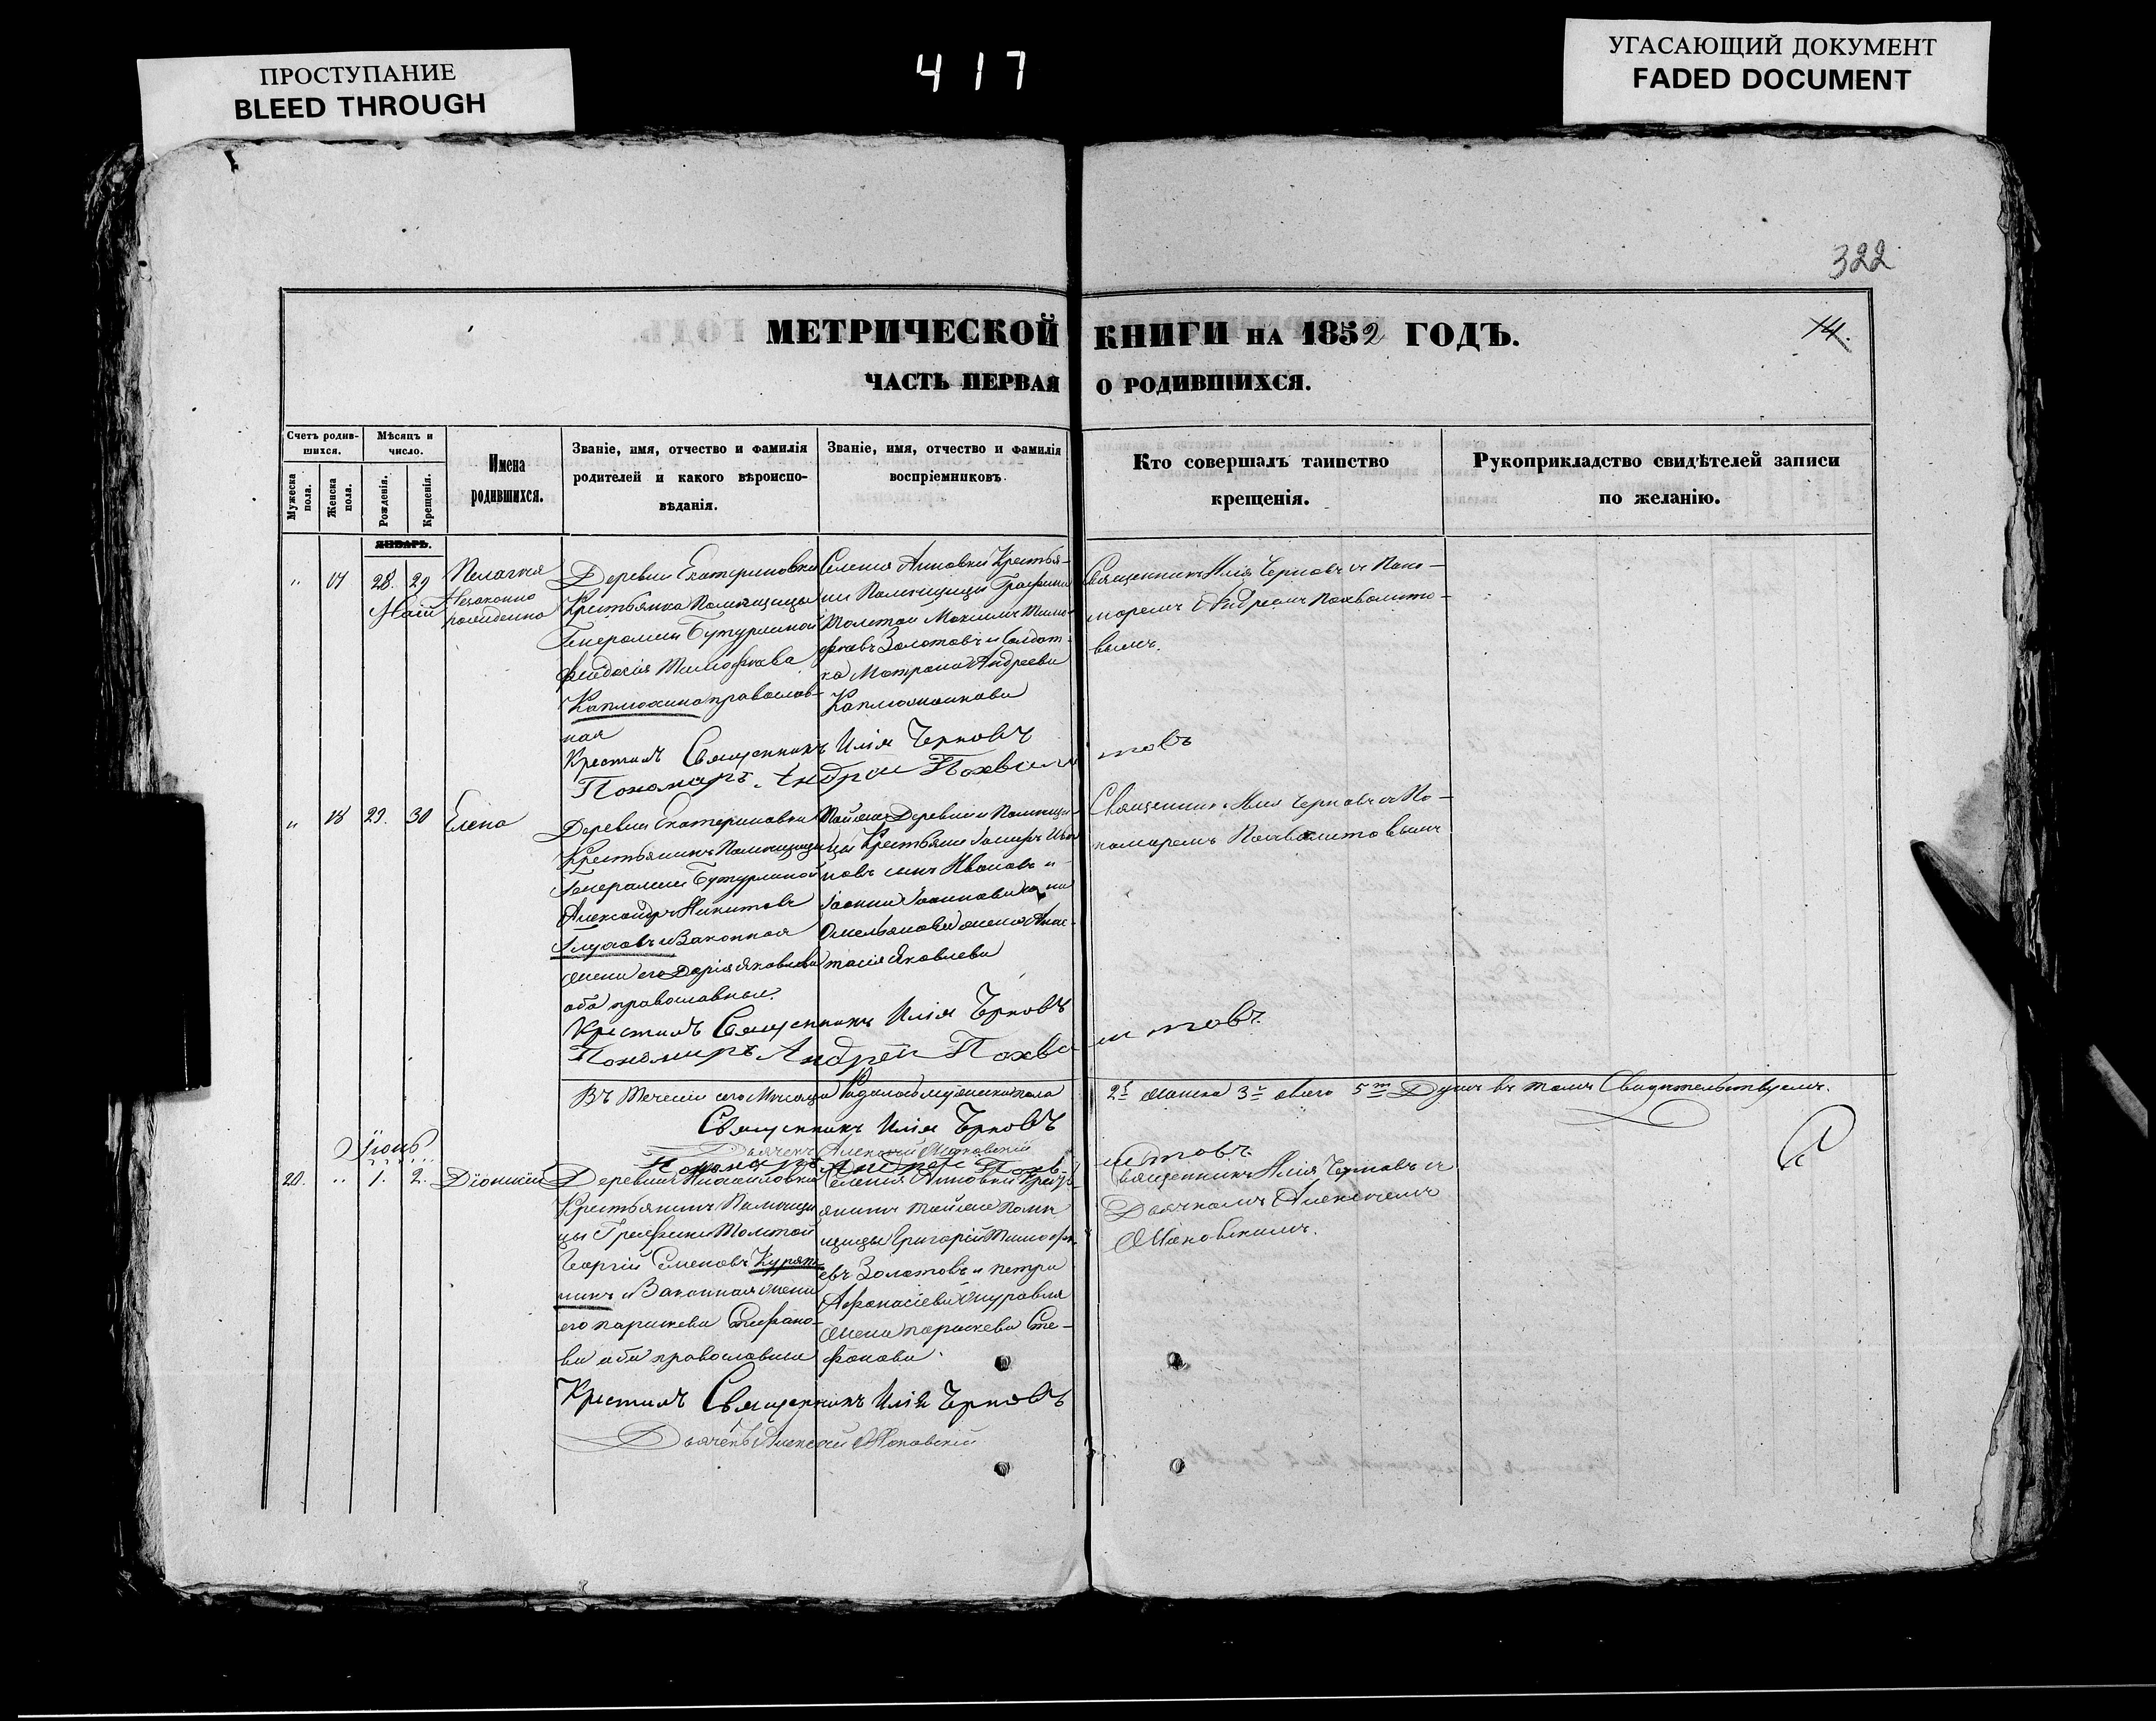 ПРОСТУПАНИЕ
BLEED THROUGH
417
УГАСАЮЩИЙ ДОКУМЕНТ
FADED DOCUMENT
322
МЕТРИЧЕСКОЙ КНИГИ НА 1852 ГОДЪ.
14.
ЧАСТЬ ПЕРВАЯ О РОДИВШИХСЯ.
Счетъ родив-
шихся.
Мужеска пола.
Женска пола.
Мѣсяцъ и
число.
Рожденія.
Крещенія.
Имена
родившихся.
Званіе, имя, отчество и фамилія
родителей и какого вѣроиспо-
вѣданія.
Званіе, имя, отчество и фамилія
воспріемниковъ.
Кто совершалъ таинство
крещенія.
Рукоприкладство свидѣтелей записи
по желанію.
ЯНВАРЬ.
" 17 28. 29
Маій
Пелагія
Незаконно
рожденна
Деревни Екатериновки
Крестьянка Помѣщицы
Генеральши Бутурлиной
Феодосія Тимофѣева
Каплюхина православ-
ная
Селенія Анновки Крестья-
нин Помѣщицы Графини
Толстой Максимъ Тимо-
фѣевъ Золотовъ и Солдат-
ка Матрона Андреева
Священникъ Илія Черновъ съ Поно-
маремъ Андреемъ Похвалито-
вымъ.
Крестилъ Священникъ Илія Черновъ
Пономарь Андрей Похвалитовъ
" 18 29. 30 Елена
Деревни Екатериновки
Крестьянинъ Помѣщицы
Генеральши Бутурлиной
Александръ Никитовъ
и Законная
жена его Дарія Яковлева
оба православные.
Той же Деревни и Помѣщи-
цы Крестьяне
новъ сынъ Ивановъ и
Омельянова жена Анас-
тасія Яковлева
Священникъ Илія Черновъ съ По-
номаремъ Похвалитовымъ
Крестилъ Священникъ Илія Черновъ
Пономарь Андрей Похвалитовъ.
Въ Теченіи сего Мѣсяца Родилось мужеска пола 2 женска 3 обоего 5 Душъ въ томъ Свидѣтельствуемъ.
Священникъ Илія Черновъ
Дьячекъ Алексѣй Маковскій
Пономарь Андрей Похвалитовъ.
Іюнь
20. " 1. 2. Діонисій
Деревни Михайловки
Крестьянинъ Помѣщи-
цы Графини Толстой
Георгій Семеновъ Курят-
никъ и Законная жена
его Параскева Стефано-
ва оба православные
Селенія Анновки Кресть-
янинъ той же Помѣ
щицы Григорій Тимофѣ-
евъ Золотовъ и Петра
Афанасіева Журавля
жена Параскева Сте-
фанова.
Священникъ Илія Черновъ съ
Дьячкомъ Алексѣемъ
Маковскимъ.
Крестилъ Священникъ Илія Черновъ
Дьячекъ Алексѣй Маковскій